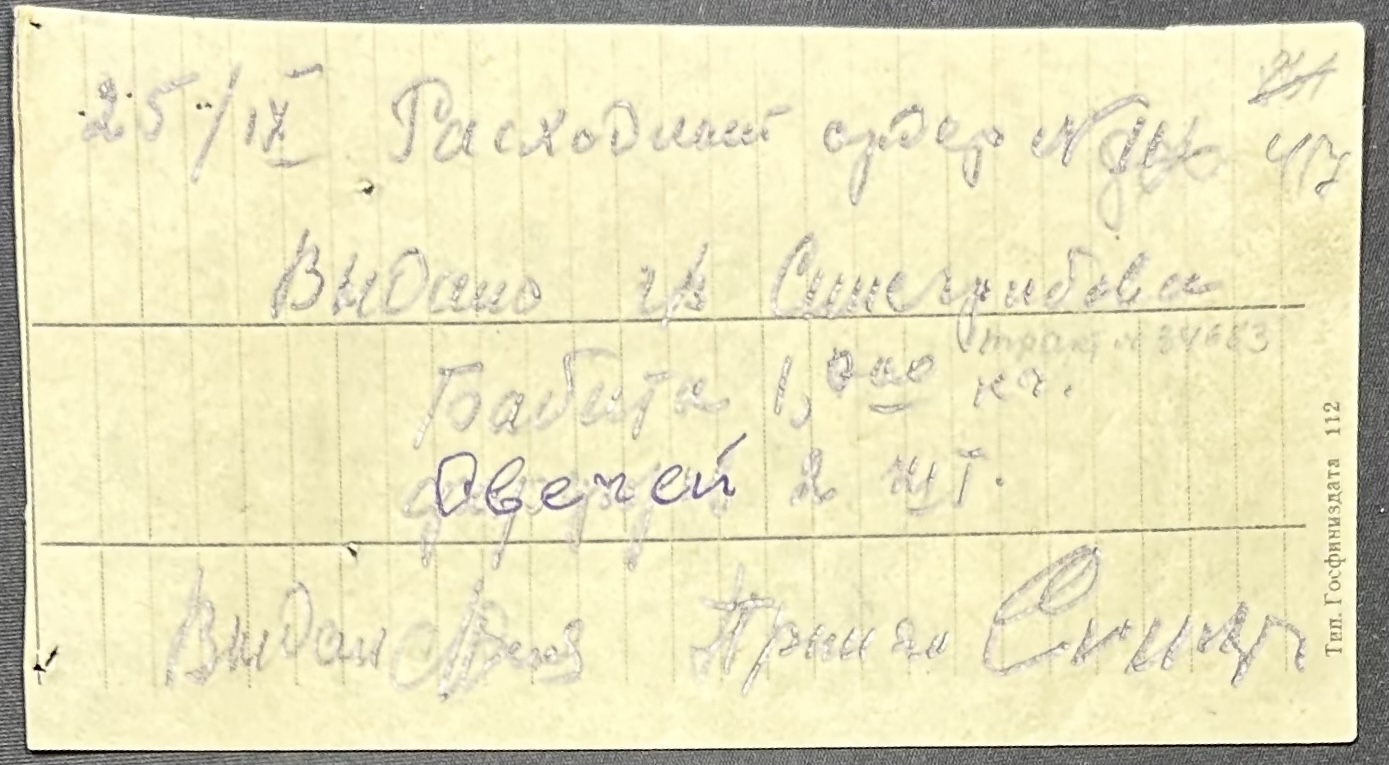 25/IX Расходный ордер № 417
Выдано гр Синегрибова
тракт № 34653
Бабита 1,000 кг.
Свечей 2 шт.
Выдал Принял
Тип. Госфиниздата 112